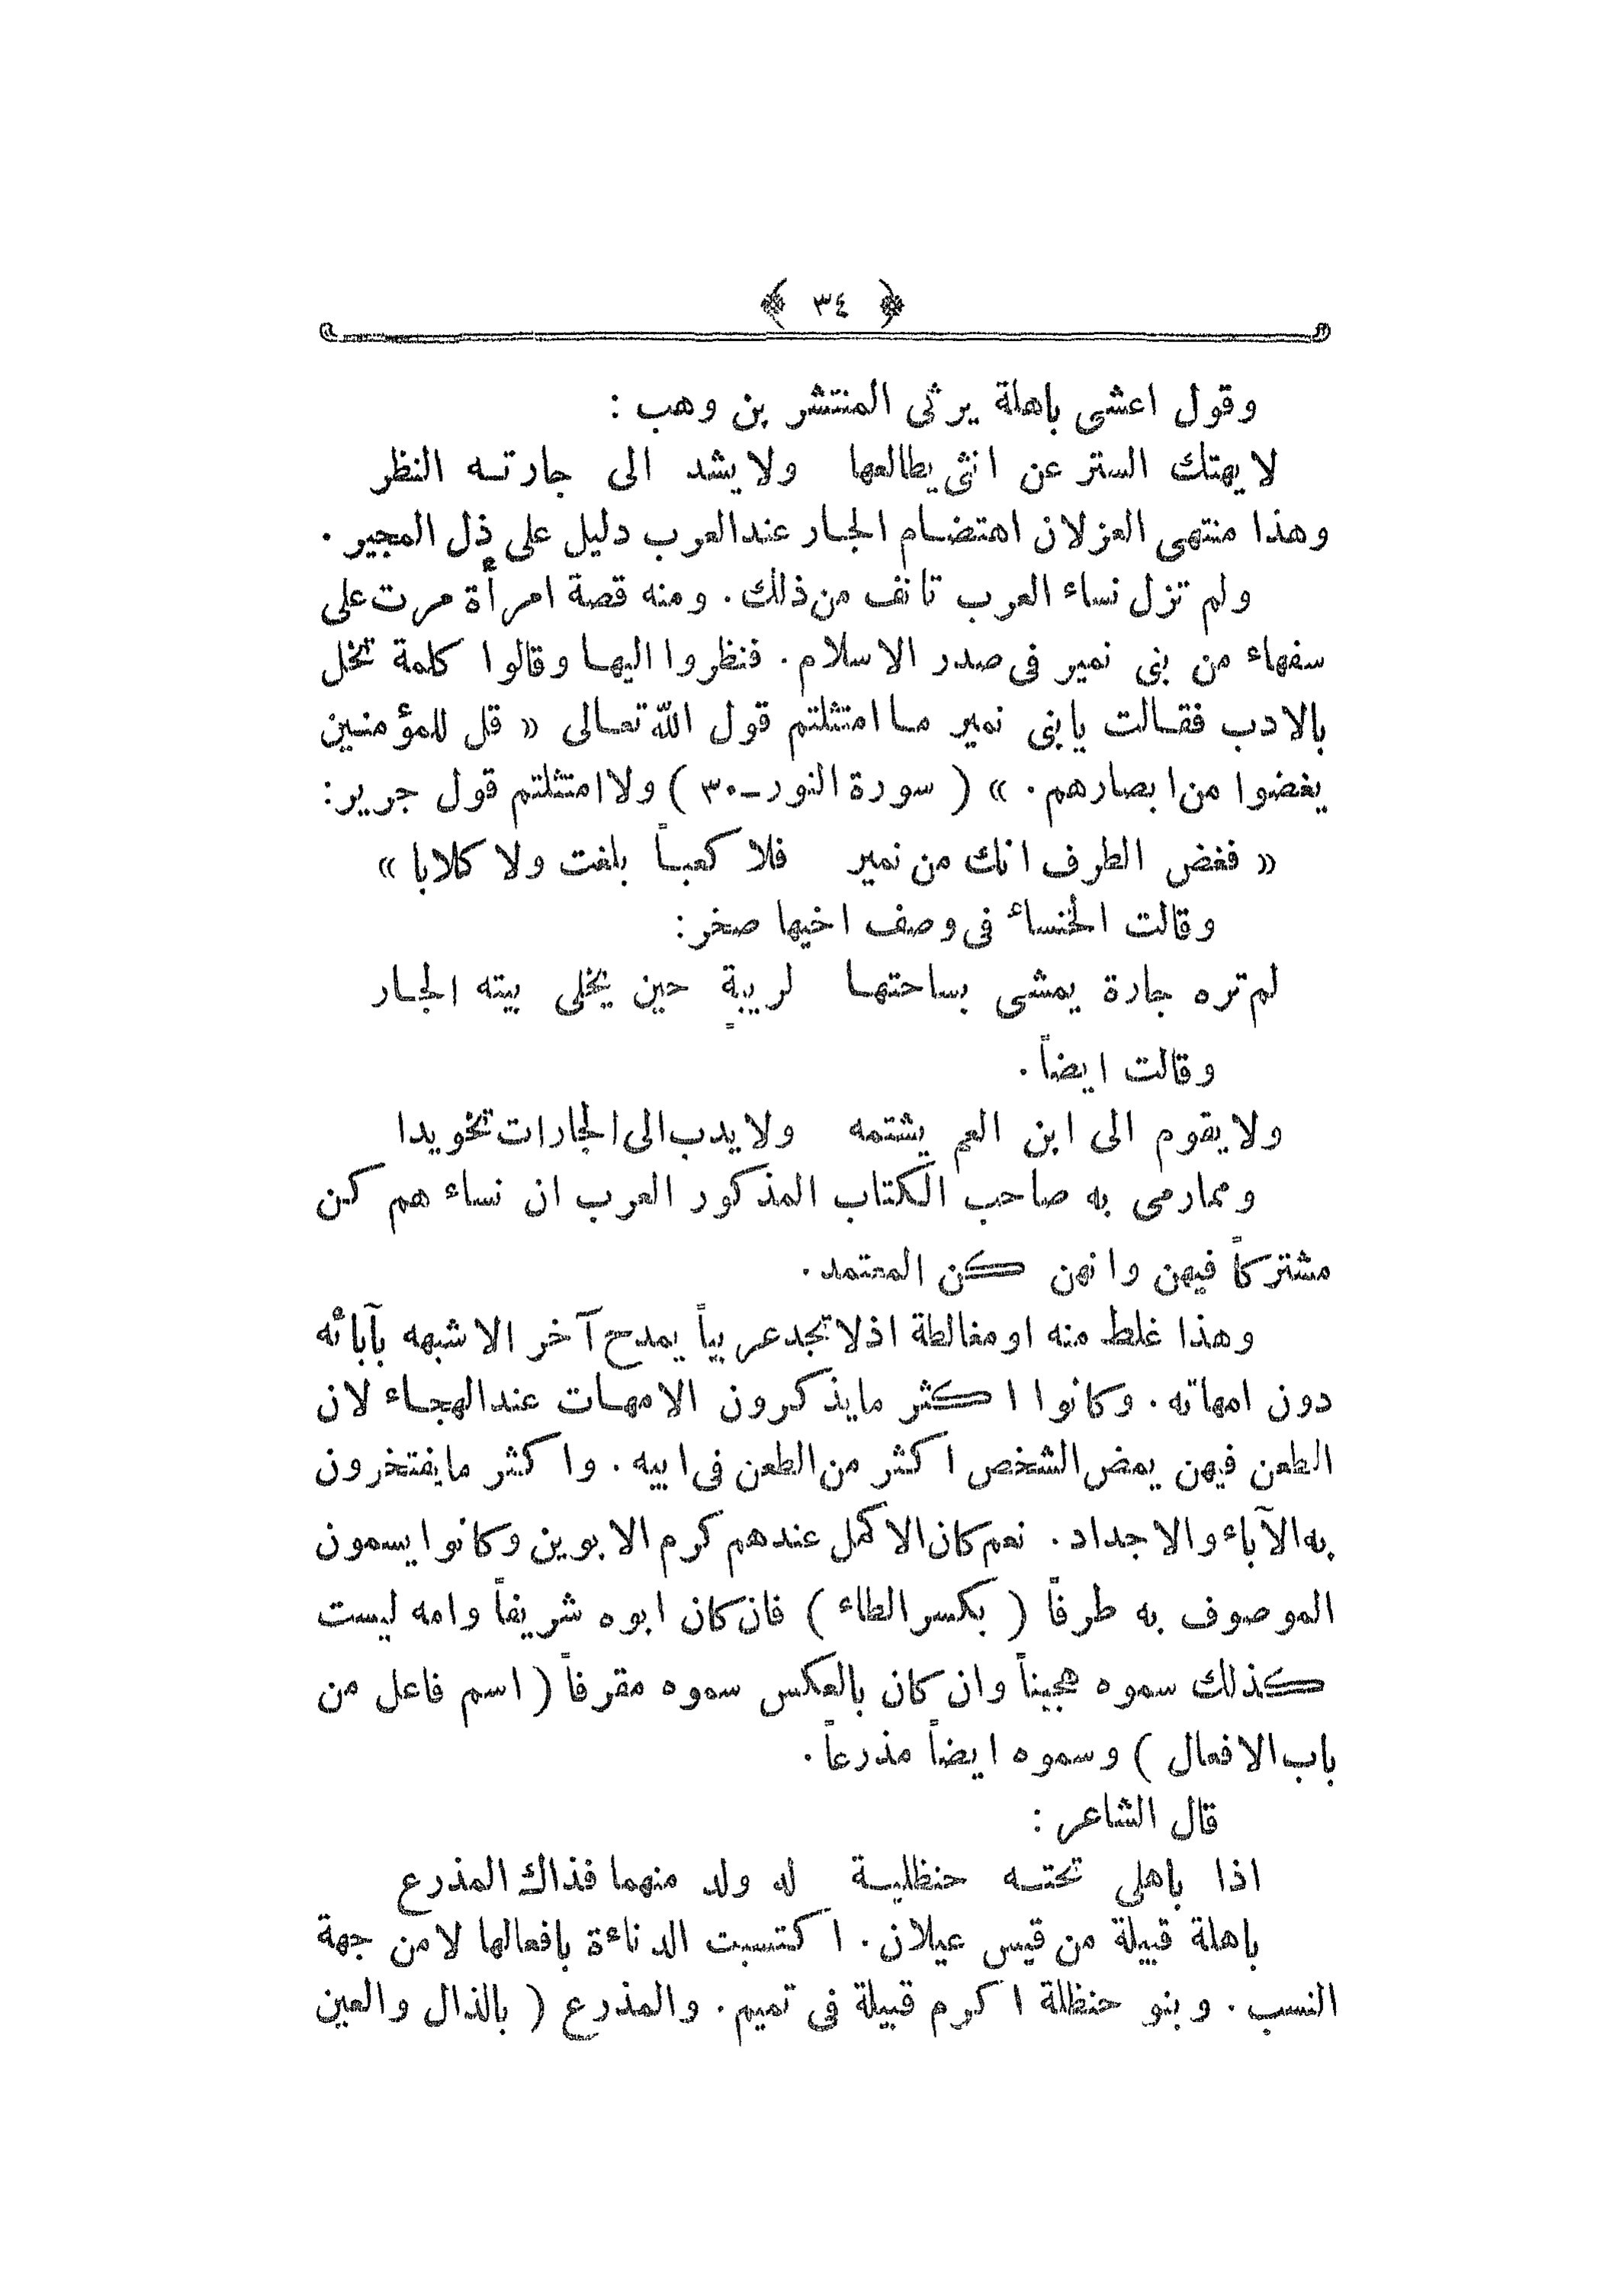 ﴿ ٣٤ ﴾
وقول اعشى باهلة يرثى المنتشر بن وهب :
لا يهتك الستر عن انثى يطالعها ولا يشد الى جارته النظر
وهذا منتهى العز لان اهتضام الجار عند العرب دليل على ذل المجير .
ولم تزل نساء العرب تانف من ذلك . ومنه قصة امرأة مرت على
سفهاء من بنى نمير فى صدر الاسلام . فنظروا اليها وقالوا كلمة تخل
بالادب فقالت يا بنى نمير ما امتثلتم قول الله تعالى « قل للمؤمنين
يغضوا من ابصارهم . » ( سورة النور ــ ٣٠ ) ولا امتثلتم قول جرير :
« فغض الطرف انك من نمير فلا كعباً بلغت ولا كلابا »
وقالت الخنساء فى وصف اخيها صخر :
لم تره جارة يمشى بساحتها لريبةٍ حين يخلى بيته الجار
وقالت ايضاً .
ولا يقوم الى ابن العم يشتمه ولا يدب الى الجارات تخويدا
ومما رمى به صاحب الكتاب المذكور العرب ان نساء هم كن
مشتركاً فيهن وانهن كن المعتمد .
وهذا غلط منه او مغالطة اذ لا تجد عربياً يمدح آخر الا شبهه بآبائه
دون امهاته . وكانوا اكثر ما يذكرون الامهات عند الهجاء لان
الطعن فيهن يمض الشخص اكثر من الطعن فى ابيه . واكثر ما يفتخرون
به الآباء والاجداد . نعم كان الاكمل عندهم كرم الابوين وكانوا يسمون
الموصوف به طرفاً ( بكسر الطاء ) فان كان ابوه شريفاً وامه ليست
كذلك سموه هجيناً وان كان بالعكس سموه مقرفاً ( اسم فاعل من
باب الافعال ) وسموه ايضاً مذرعاً .
قال الشاعر :
اذا باهلى تحته حنظلية له ولد منهما فذاك المذرع
باهلة قبيلة من قيس عيلان . اكتسبت الدناءة بافعالها لا من جهة
النسب . وبنو حنظلة اكرم قبيلة فى تميم . والمذرع ( بالذال والعين